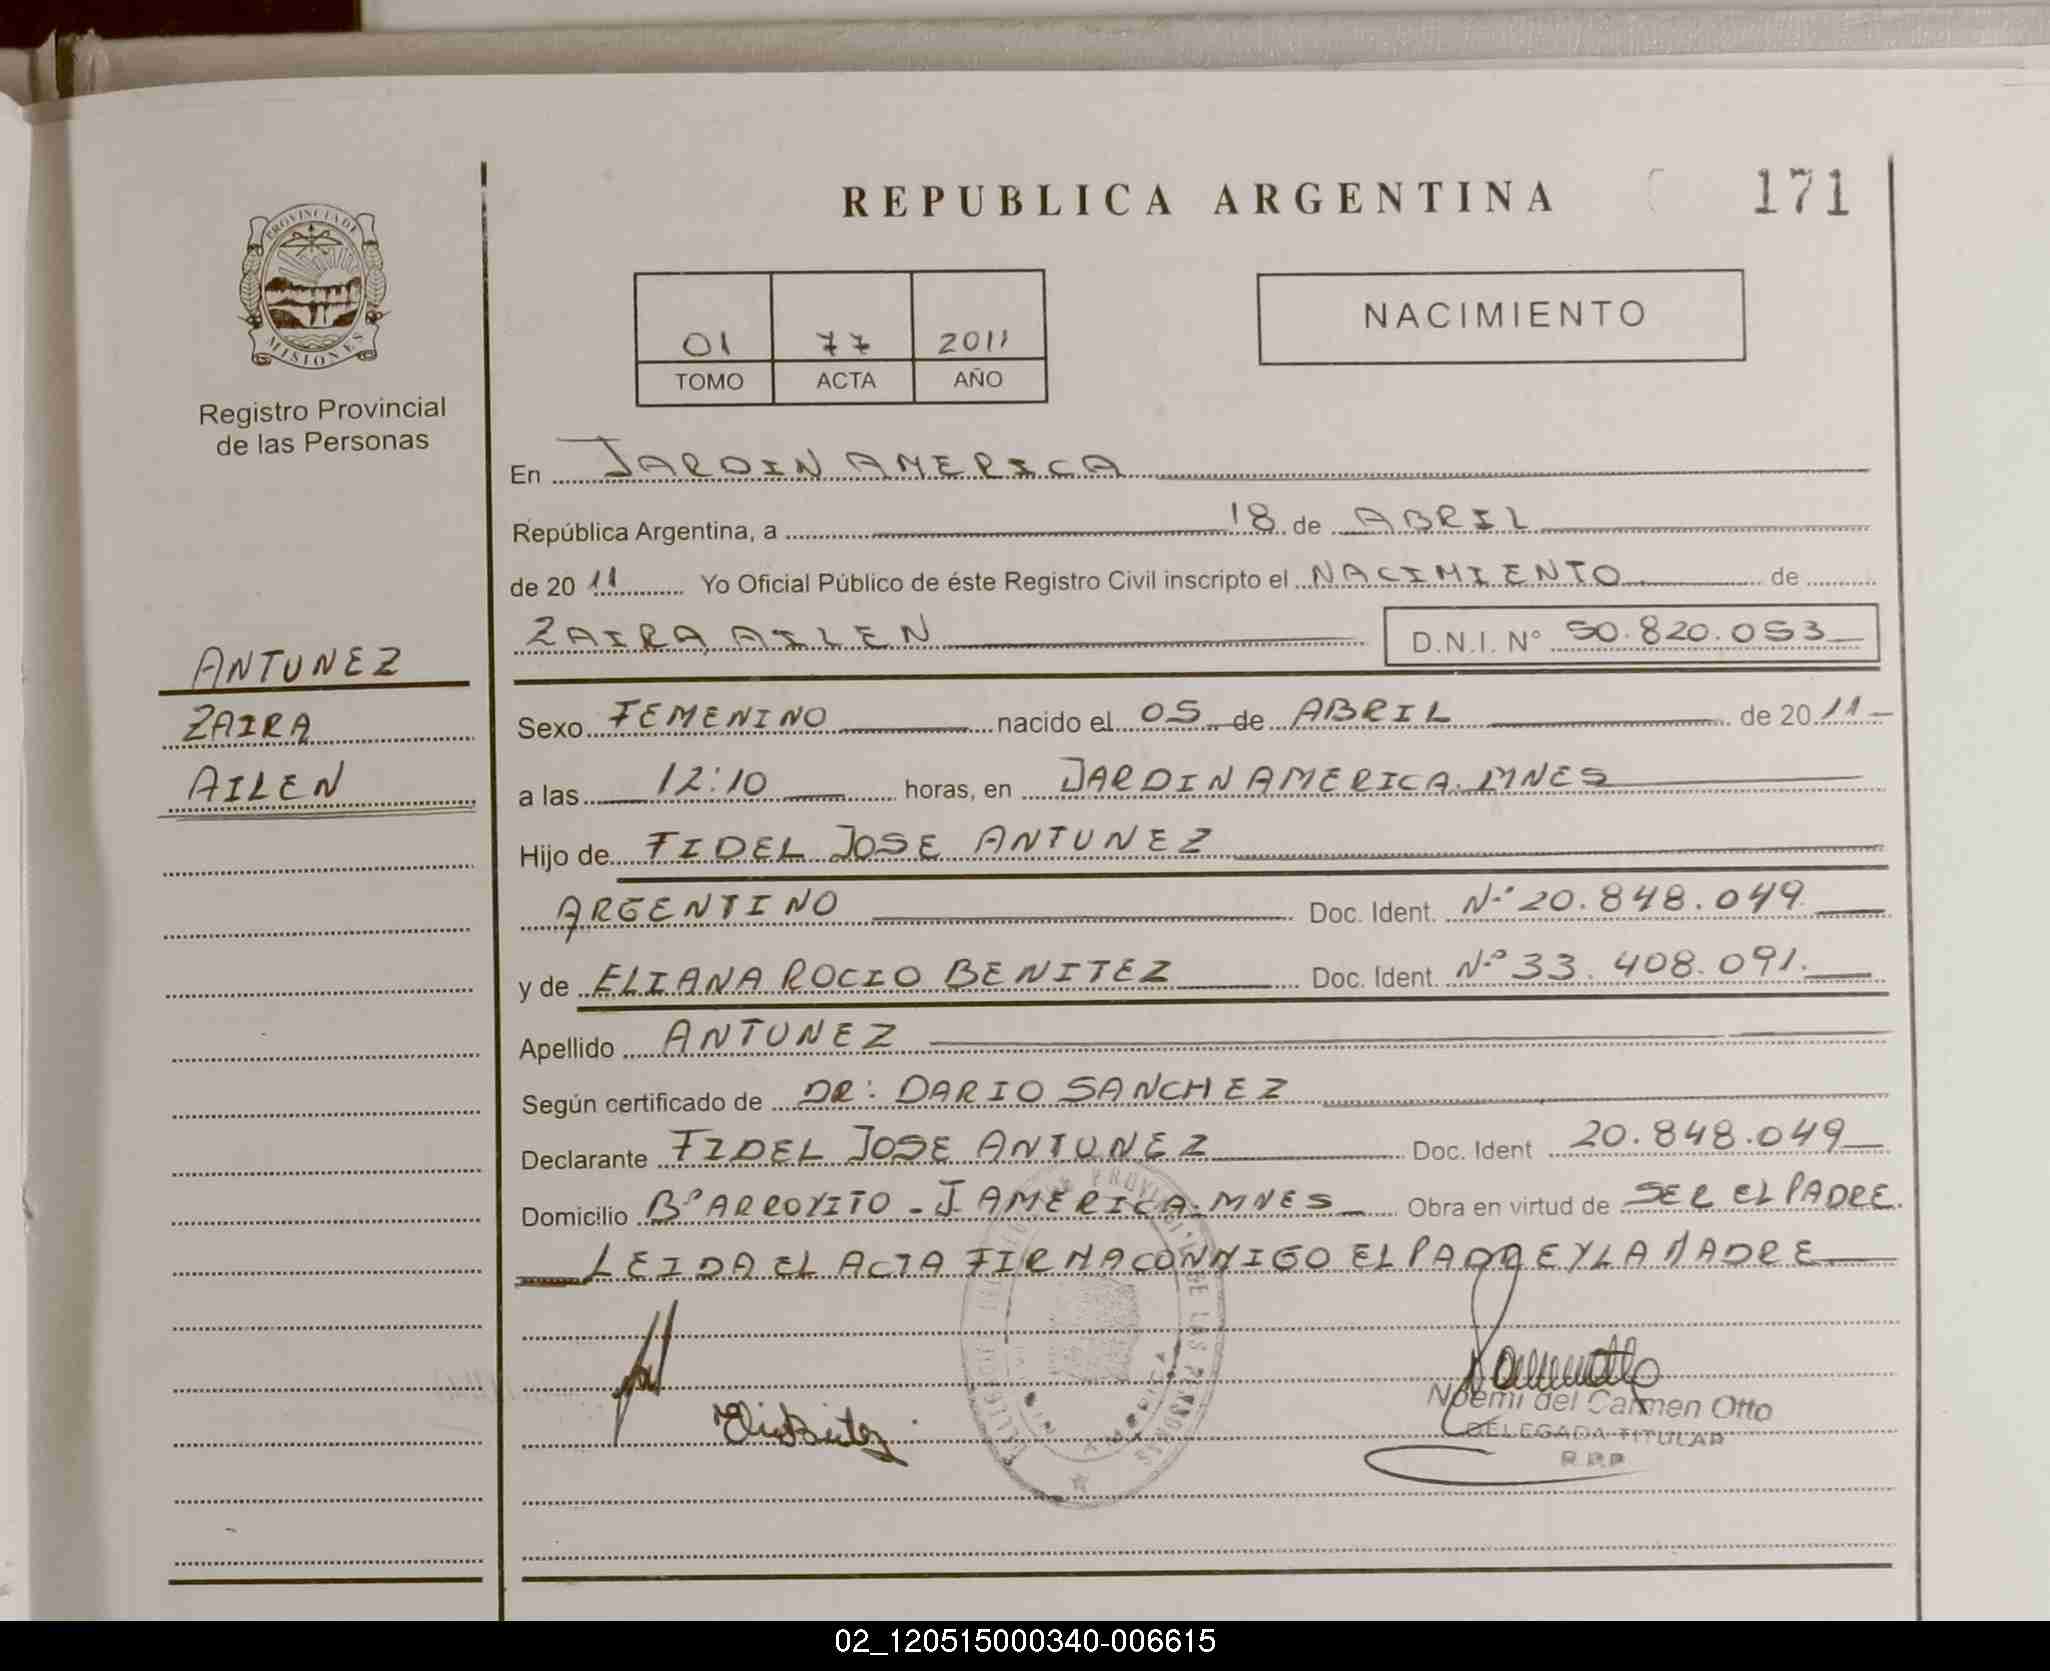 REPUBLICA ARGENTINA
171
PROVINCIA DE
MISIONES
Registro Provincial
de las Personas
01 77 2011
TOMO ACTA AÑO
NACIMIENTO
En JARDIN AMERICA
República Argentina, a 18 de ABRIL
de 20 11 Yo Oficial Público de éste Registro Civil inscripto el NACIMIENTO de
ZAIRA AILEN D.N.I. N° 50.820.053
ANTUNEZ
ZAIRA
AILEN
Sexo FEMENINO nacido el 05 de ABRIL de 20 11
a las 12:10 horas, en JARDIN AMERICA. MNES
Hijo de FIDEL JOSE ANTUNEZ
ARGENTINO Doc. Ident. N° 20.848.049
y de ELIANA ROCIO BENITEZ Doc. Ident. N° 33.408.091.
Apellido ANTUNEZ
Según certificado de DR: DARIO SANCHEZ
Declarante FIDEL JOSE ANTUNEZ Doc. Ident 20.848.049
Domicilio B° ARROYITO - J. AMERICA. MNES Obra en virtud de SER EL PADRE.
LEIDA EL ACTA FIRMA CONMIGO EL PADRE Y LA MADRE
Noemi del Carmen Otto
DELEGADA TITULAR
R.P.P
02_120515000340-006615